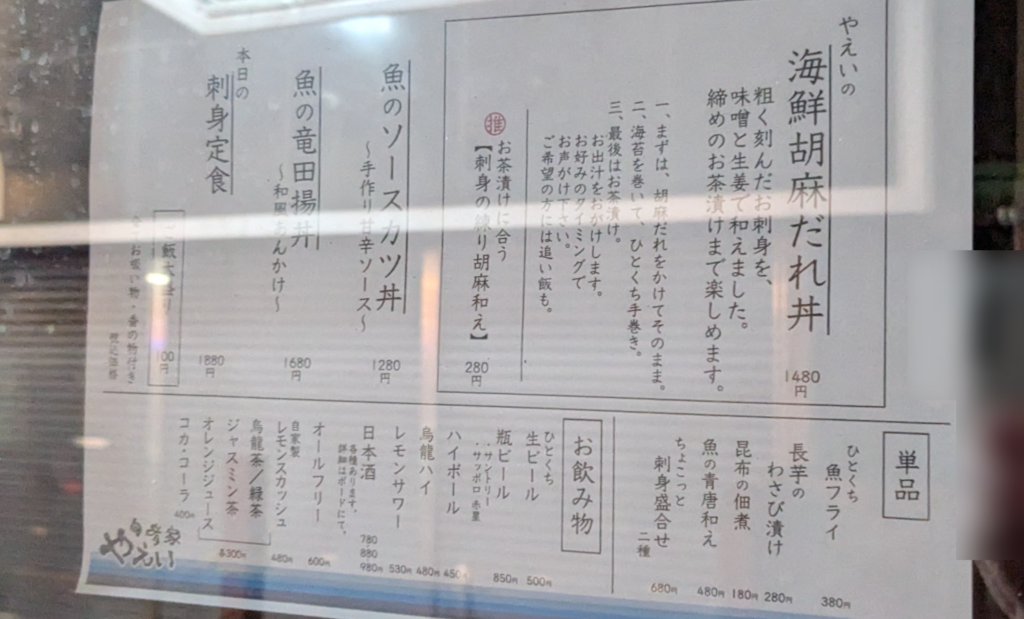 やえいの
海鮮胡麻だれ丼
1480円
粗く刻んだお刺身を、
味噌と生姜で和えました。
締めのお茶漬けまで楽しめます。
一、まずは、胡麻だれをかけてそのまま。
二、海苔を巻いて、ひとくち手巻き。
三、最後はお茶漬け。
お出汁をおかけします。
お好みのタイミングで
お声がけ下さい。
ご希望の方には追い飯も。
推
お茶漬けに合う
【刺身の練り胡麻和え】
280円
魚のソースカツ丼
〜手作り甘辛ソース〜
1280円
魚の竜田揚丼
〜和風あんかけ〜
1680円
本日の
刺身定食
1880円
ご飯大盛り
100円
お吸い物・香の物付き
税込価格
単品
ひとくち
魚フライ
380円
長芋の
わさび漬け
280円
昆布の佃煮
180円
魚の青唐和え
480円
ちょこっと
刺身盛合せ
二種
680円
お飲み物
ひとくち
生ビール
500円
瓶ビール
・サントリー
・サッポロ赤星
850円
ハイボール
450円
烏龍ハイ
480円
レモンサワー
530円
日本酒
各種あります。
詳細はボードにて。
780
880
980円
オールフリー
600円
自家製
レモンスカッシュ
480円
烏龍茶／緑茶
ジャスミン茶
オレンジジュース
各300円
コカ・コーラ
400円
やえい